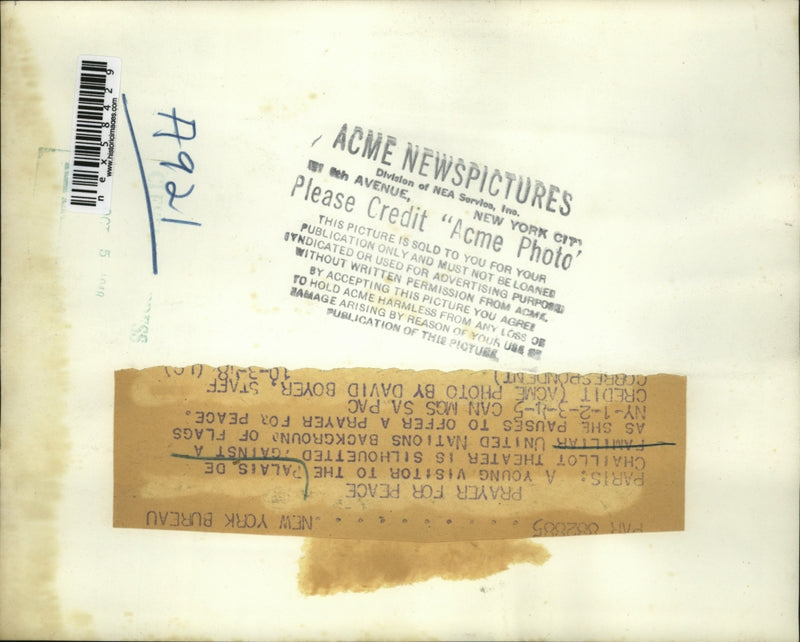 nex58429
www.historicimages.com
A921
OCT 5 1948
ACME NEWSPICTURES
Division of NEA Service, Inc.
8th AVENUE, NEW YORK CITY
Please Credit "Acme Photo"
THIS PICTURE IS SOLD TO YOU FOR YOUR
PUBLICATION ONLY AND MUST NOT BE LOANED
SYNDICATED OR USED FOR ADVERTISING PURPOSES
WITHOUT WRITTEN PERMISSION FROM ACME.
BY ACCEPTING THIS PICTURE YOU AGREE
TO HOLD ACME HARMLESS FROM ANY LOSS OR
DAMAGE ARISING BY REASON OF YOUR USE OR
PUBLICATION OF THIS PICTURE.
PAR 882885 . . . . . . . . . . NEW YORK BUREAU
PRAYER FOR PEACE
PARIS: A YOUNG VISITOR TO THE PALAIS DE
CHAILLOT THEATER IS SILHOUETTED AGAINST A
FAMILIAR UNITED NATIONS BACKGROUND OF FLAGS
AS SHE PAUSES TO OFFER A PRAYER FOR PEACE.
NY-1-2-3-4-5 CAN MGS SA PAC
CREDIT (ACME PHOTO BY DAVID BOYER, STAFF
CORRESPONDENT). 10-3-48